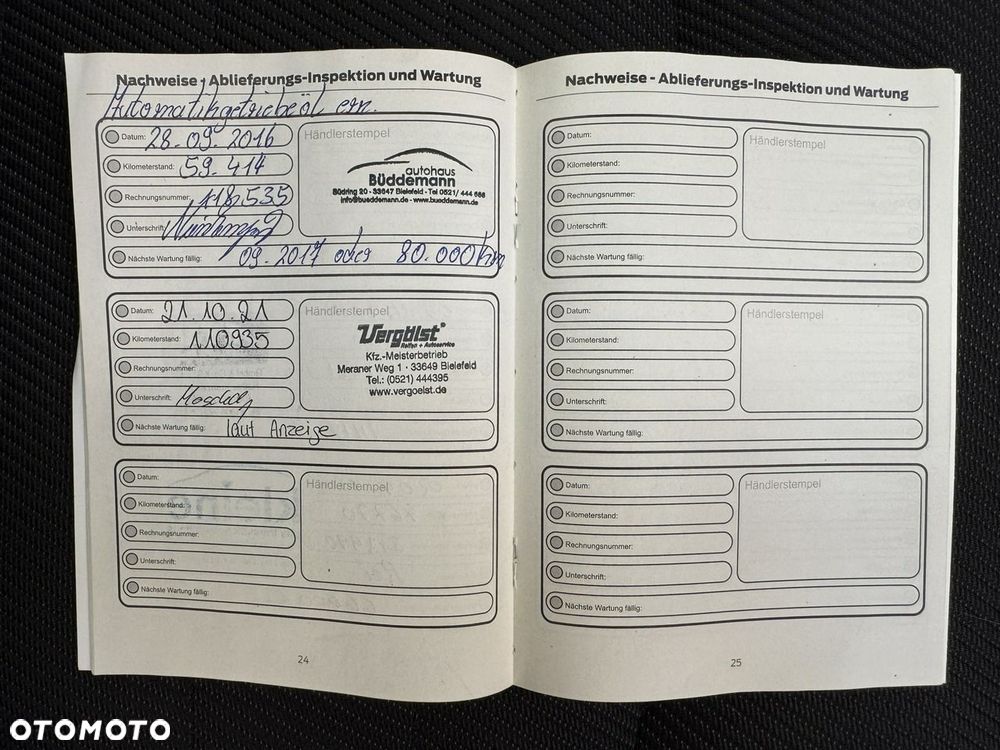 Nachweise - Ablieferungs-Inspektion und Wartung
Automatikgetriebeöl ern.
Datum: 28.09.2016
Kilometerstand: 59.414
Rechnungsnummer: 118535
Unterschrift:
Nächste Wartung fällig: 09.2017 oder 80.000km
Händlerstempel
autohaus
Büddemann
Südring 20 - 33647 Bielefeld - Tel 0521/ 444 666
info@bueddemann.de - www.bueddemann.de
Datum: 21.10.21
Kilometerstand: 110935
Rechnungsnummer:
Unterschrift:
Nächste Wartung fällig: laut Anzeige
Händlerstempel
Vergölst
Reifen + Autoservice
Kfz.-Meisterbetrieb
Meraner Weg 1 · 33649 Bielefeld
Tel.: (0521) 444395
www.vergoelst.de
Datum:
Kilometerstand:
Rechnungsnummer:
Unterschrift:
Nächste Wartung fällig:
Händlerstempel
24
Nachweise - Ablieferungs-Inspektion und Wartung
Datum:
Kilometerstand:
Rechnungsnummer:
Unterschrift:
Nächste Wartung fällig:
Händlerstempel
Datum:
Kilometerstand:
Rechnungsnummer:
Unterschrift:
Nächste Wartung fällig:
Händlerstempel
Datum:
Kilometerstand:
Rechnungsnummer:
Unterschrift:
Nächste Wartung fällig:
Händlerstempel
25
OTOMOTO